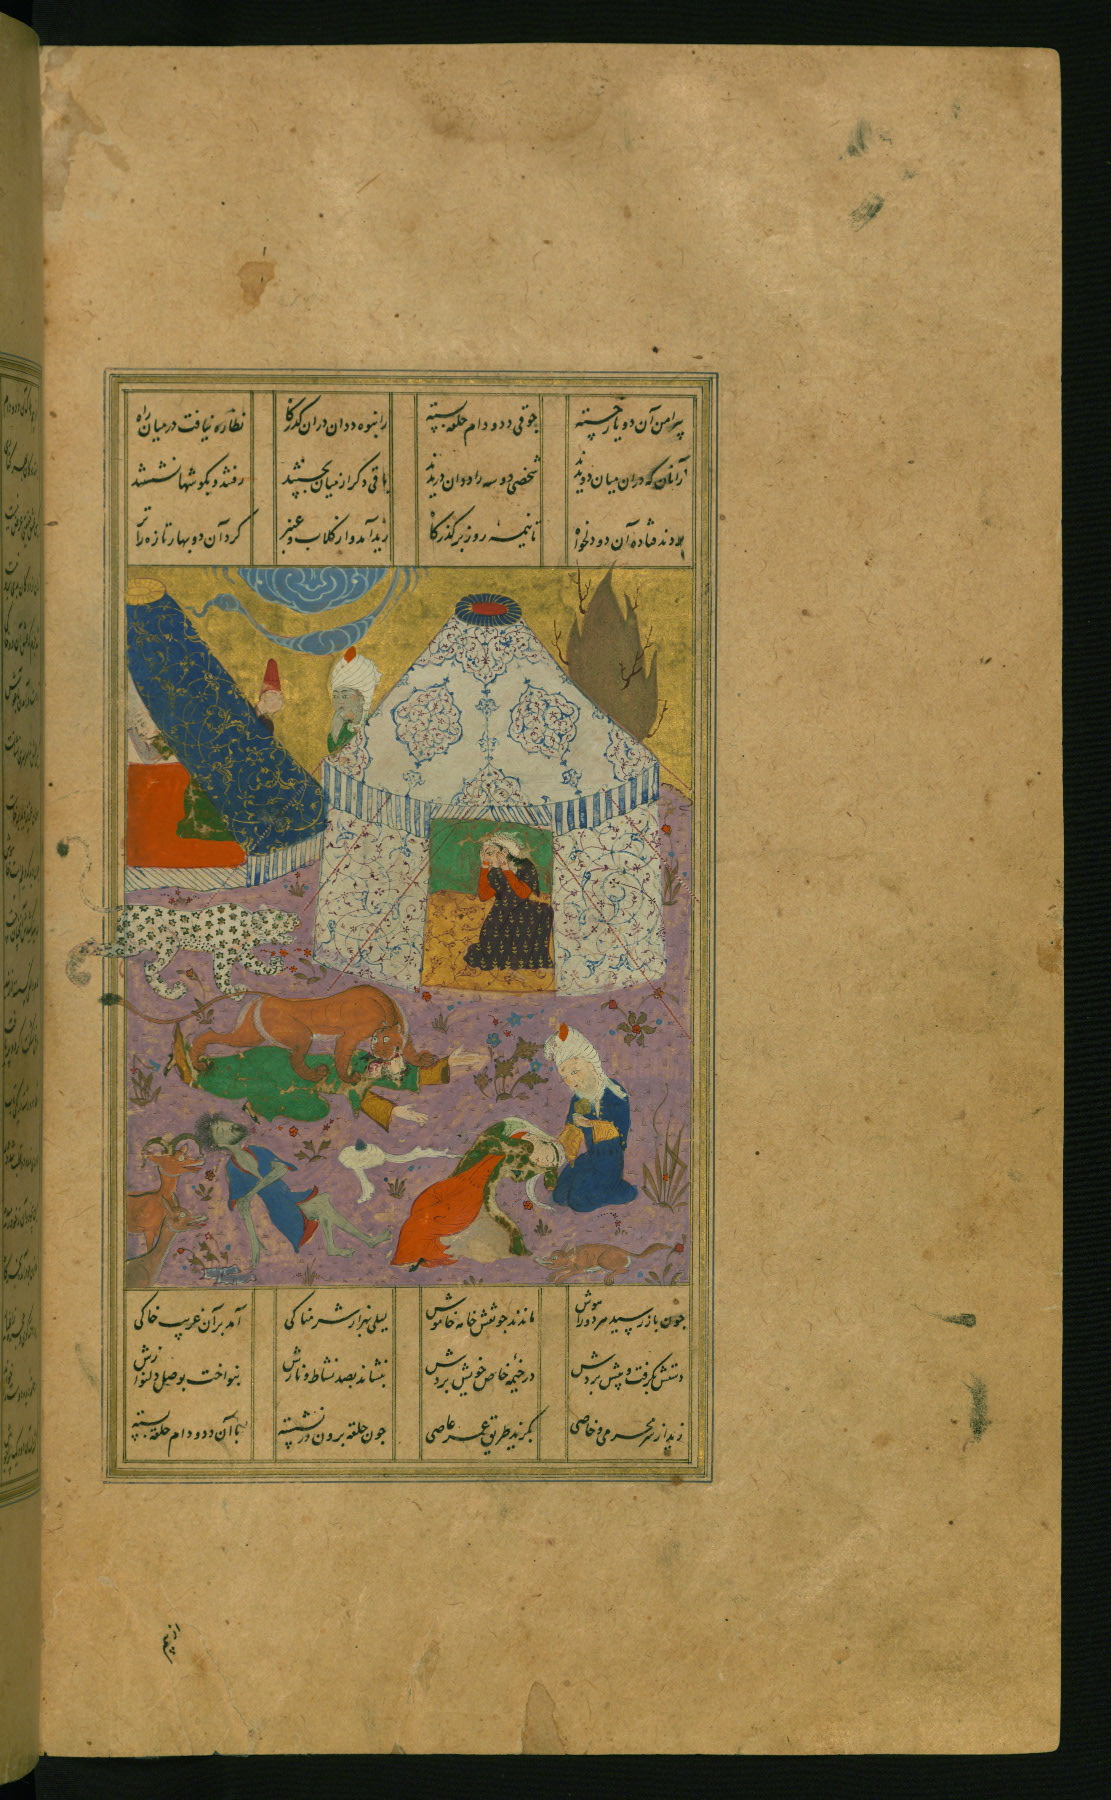 پیرامن آن دو یار خسته جوقی دد و دام حلقه بسته
ز انبوه ددان دران گذرگاه نظاره نیافت در میان راه
آنان که دران میان دویدند شخصی دو سه را ددان دریدند
باقی دگر از میان بجستند رفتند و بگوشها نشستند
بودند فتاده آن دو دلخواه تا نیمه روز بر گذرگاه
زید آمد و از گلاب و عنبر کرد آن دو بهار تازه را تر
چون باز رسید مرد را هوش ماندند چو نقش خانه خاموش
لیلی بهزار شرمناکی آمد بر آن غریب خاکی
دستش بگرفت و پیش بردش در خیمه خاص خویش بردش
بنشاند بصد نشاط و نازش بنواخت بوصل دلنوازش
زید از سر محرمی و خاصی بگزید طریق عمر عاصی
با آن دد و دام حلقه بسته چون حلقه برون در نشسته